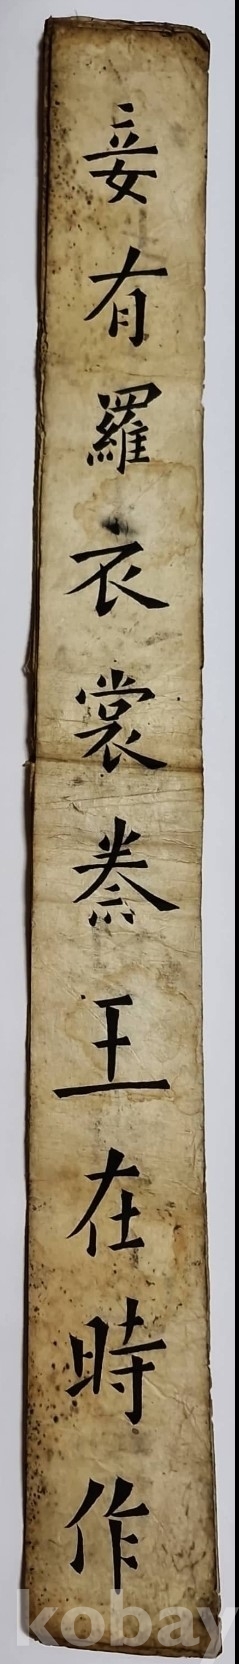 妾有羅衣裳秦王在時作
kobay